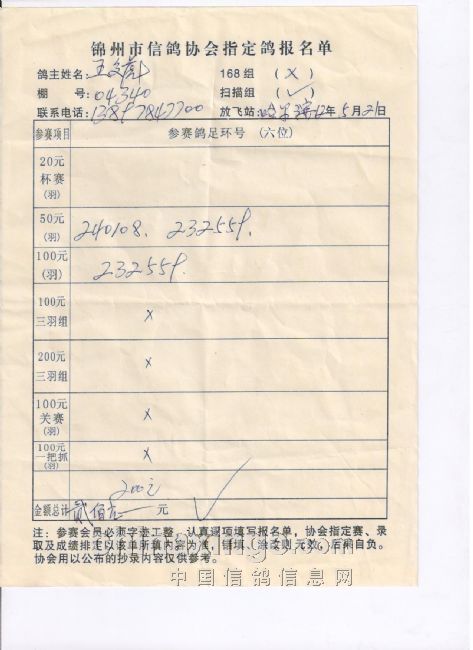 锦州市信鸽协会指定鸽报名单
鸽主姓名: 王文彪 168组 (×)
棚 号: 04340 扫描组 (✓)
联系电话: 放飞站: 哈尔滨 12年5月21日
参赛项目 参赛鸽足环号 (六位)
20元
杯赛
(羽)
50元
(羽) 240108. 232559.
100元
(羽) 232559.
100元
三羽组 ×
200元
三羽组 ×
100元
关赛
(羽) ×
100元
一把抓
(羽) ×
200元
金额总计 贰佰元 元
注: 参赛会员必须字迹工整、认真逐项填写报名单, 协会指定赛、录
取及成绩排定以该单所填内容为准, 错填、涂改则无效, 后果自负。
协会用以公布的抄录内容仅供参考。
中国信鸽信息网